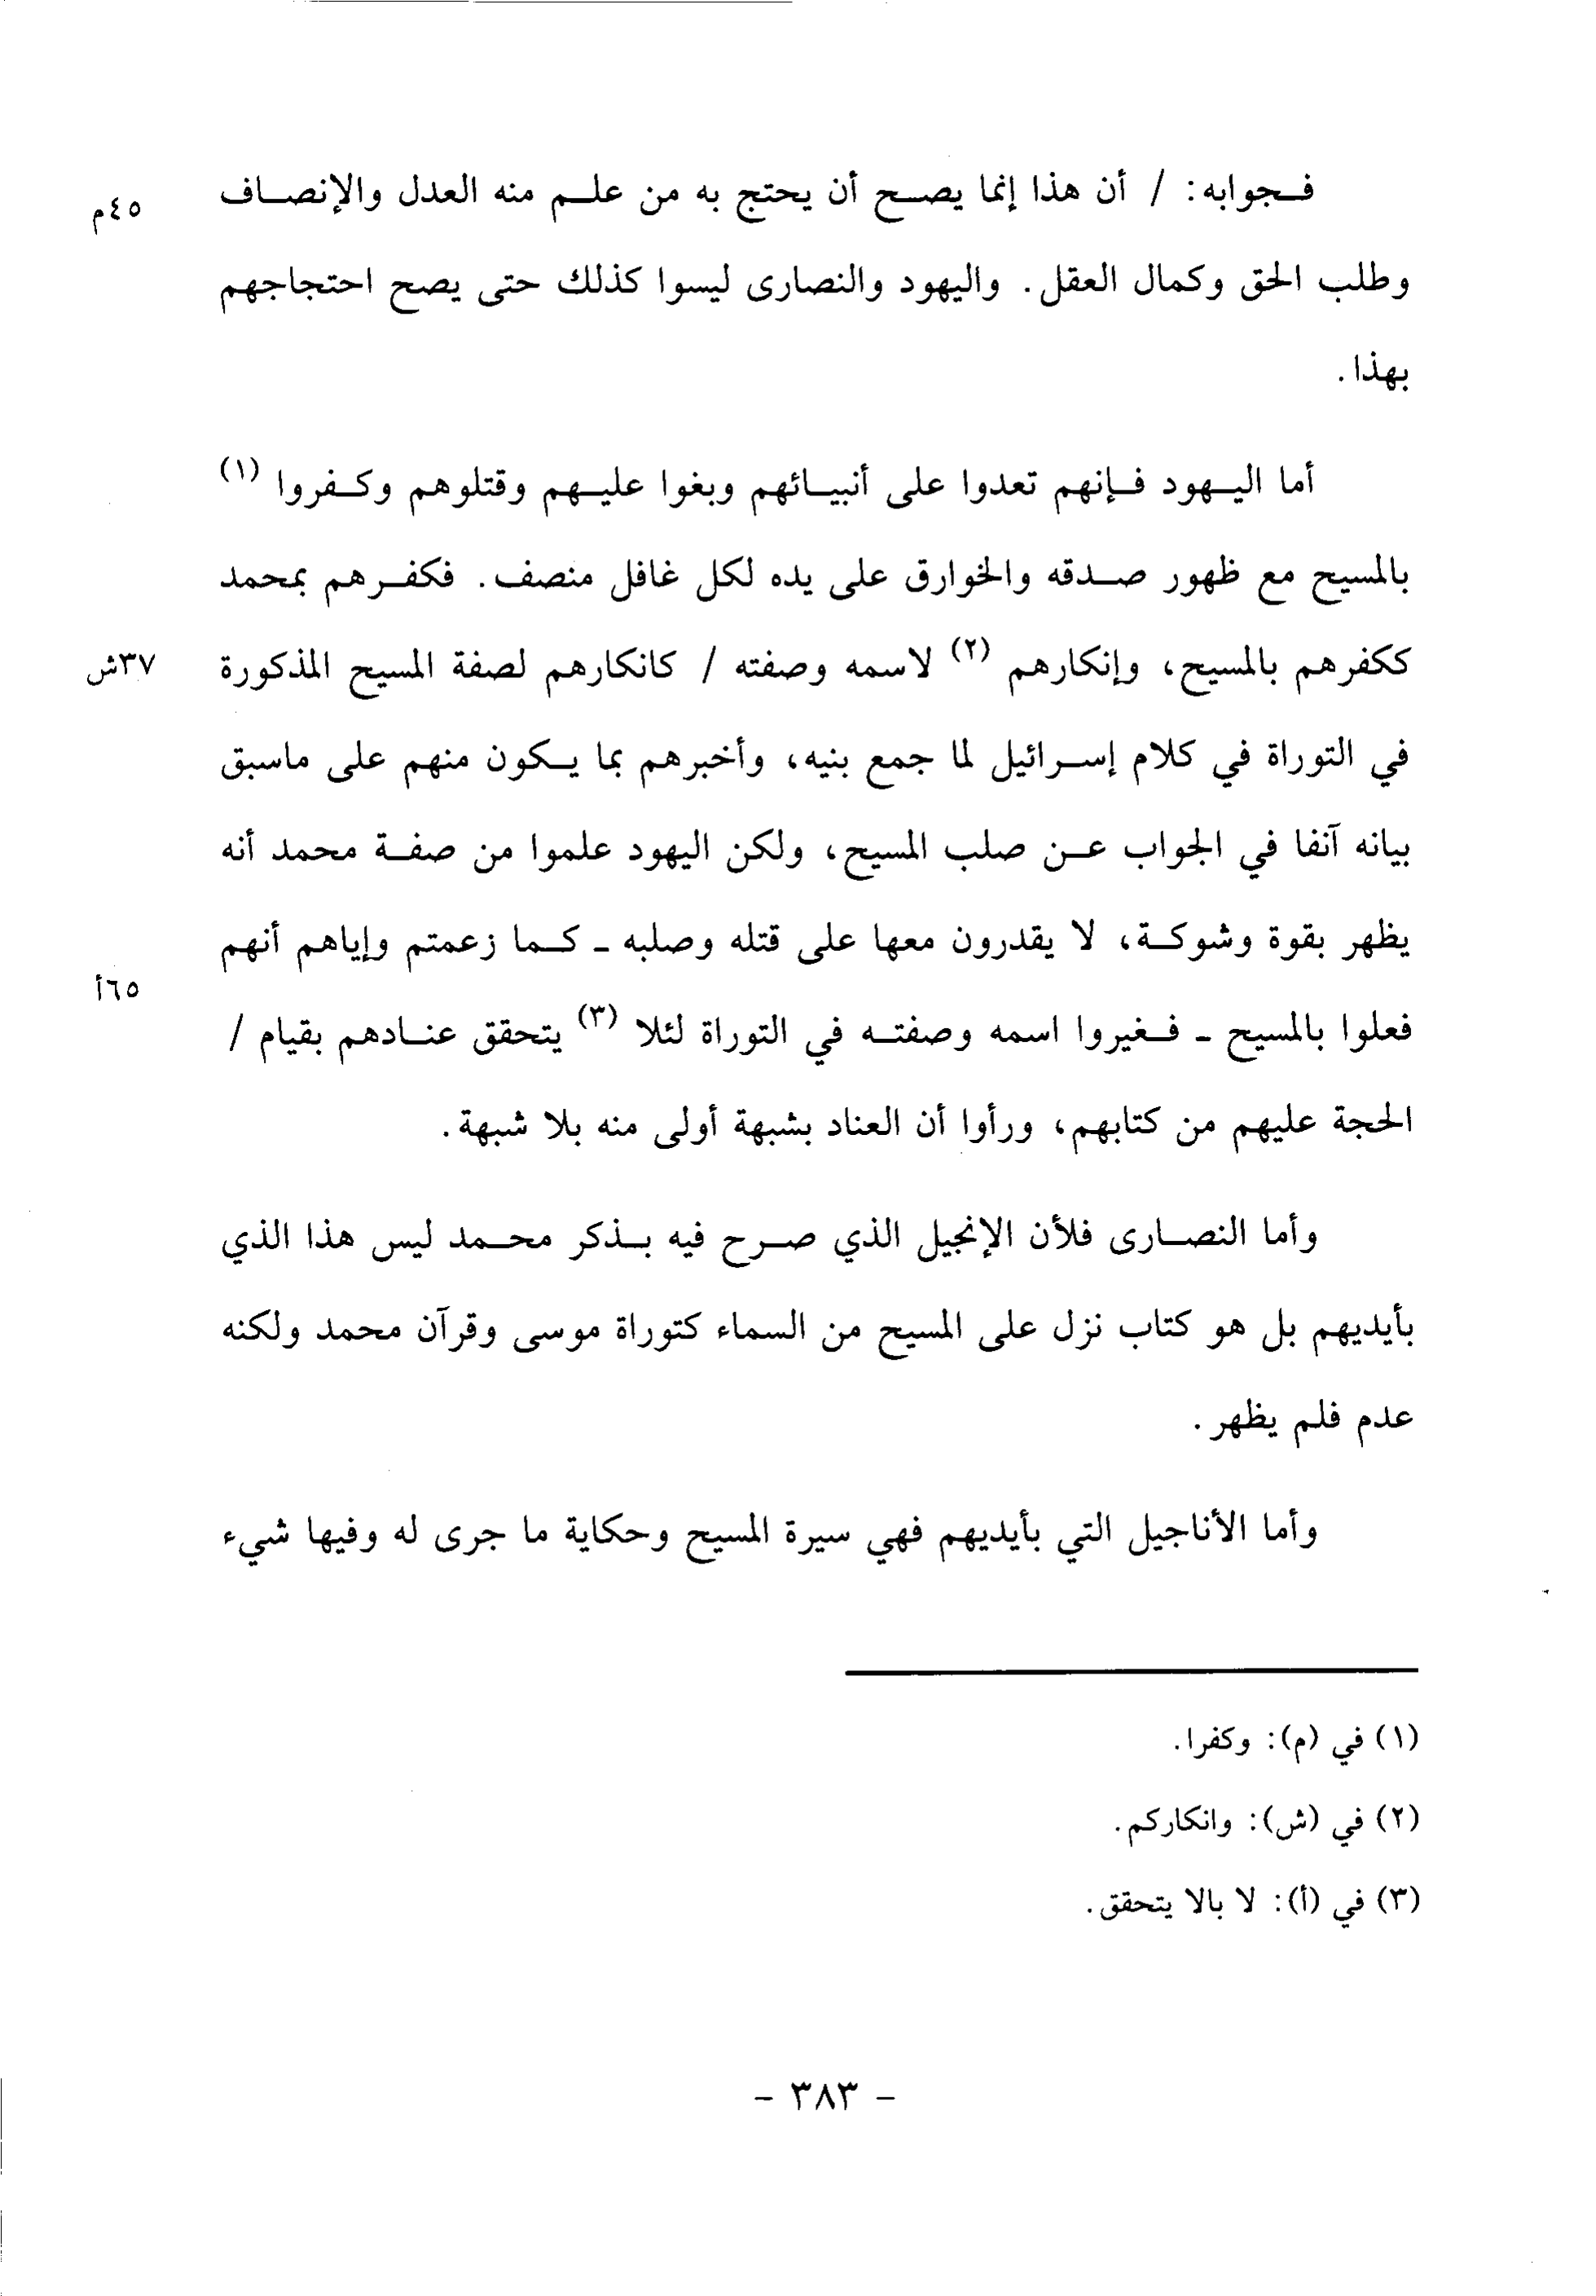 فجوابه: / أن هذا إنما يصح أن يحتج به من علم منه العدل والإنصاف
٤٥م
وطلب الحق وكمال العقل. واليهود والنصارى ليسوا كذلك حتى يصح احتجاجهم
بهذا.
أما اليهود فإنهم تعدوا على أنبيائهم وبغوا عليهم وقتلوهم وكفروا (١)
بالمسيح مع ظهور صدقه والخوارق على يده لكل غافل منصف. فكفرهم بمحمد
ككفرهم بالمسيح، وإنكارهم (٢) لاسمه وصفته / كانكارهم لصفة المسيح المذكورة
٣٧ش
في التوراة في كلام إسرائيل لما جمع بنيه، وأخبرهم بما يكون منهم على ماسبق
بيانه آنفا في الجواب عن صلب المسيح، ولكن اليهود علموا من صفة محمد أنه
يظهر بقوة وشوكة، لا يقدرون معها على قتله وصلبه - كما زعمتم وإياهم أنهم
٦٥أ
فعلوا بالمسيح - فغيروا اسمه وصفته في التوراة لئلا (٣) يتحقق عنادهم بقيام /
الحجة عليهم من كتابهم، ورأوا أن العناد بشبهة أولى منه بلا شبهة.
وأما النصارى فلأن الإنجيل الذي صرح فيه بذكر محمد ليس هذا الذي
بأيديهم بل هو كتاب نزل على المسيح من السماء كتوراة موسى وقرآن محمد ولكنه
عدم فلم يظهر.
وأما الأناجيل التي بأيديهم فهي سيرة المسيح وحكاية ما جرى له وفيها شيء
(١) في (م): وكفرا.
(٢) في (ش): وانكاركم.
(٣) في (أ): لا بالا يتحقق.
- ٣٨٣ -